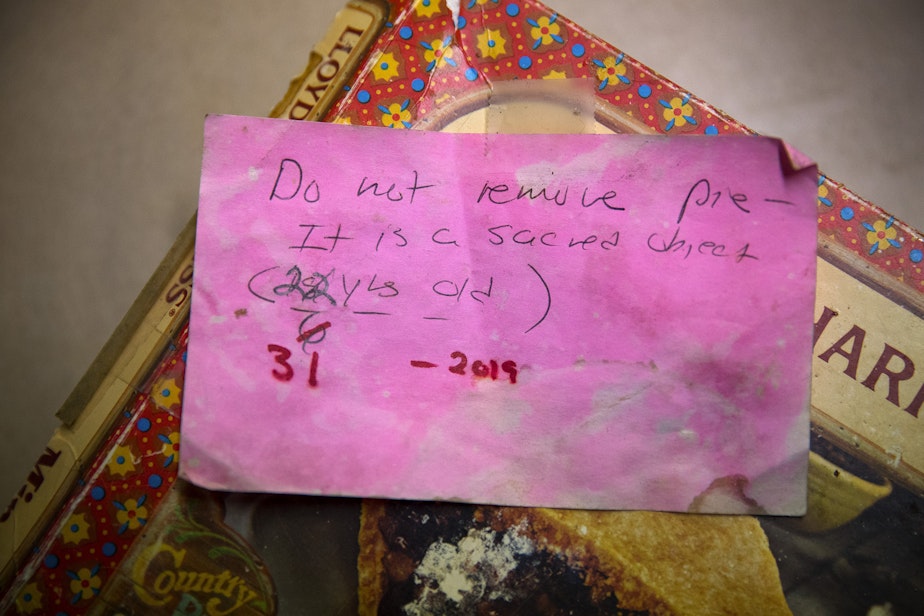 LLOYD
Do not remove pie-
It is a sacred object
(22 yrs old)
6
31 - 2019
HARR
Country